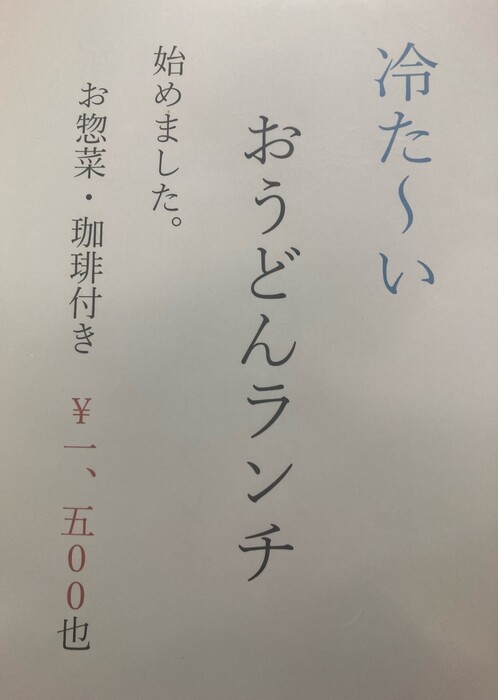 冷た〜い
おうどんランチ
始めました。
お惣菜・珈琲付き　¥一、五00也